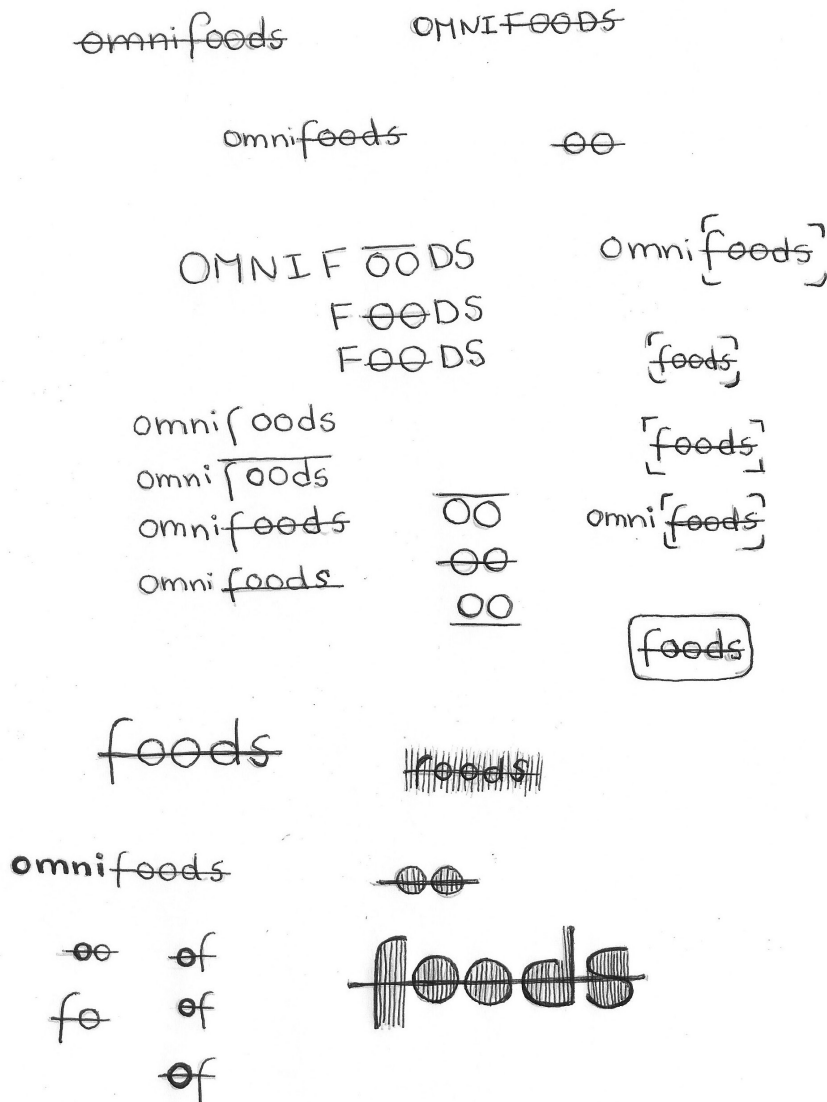 omnifoods
OMNIFOODS
omnifoods
oo
OMNIFOODS
omnifoods
FOODS
FOODS
foods
omnifoods
foods
omnifoods
oo
omnifoods
omnifoods
oo
omnifoods
oo
foods
foods
foods
omnifoods
oo
oo
of
foods
fo
of
of